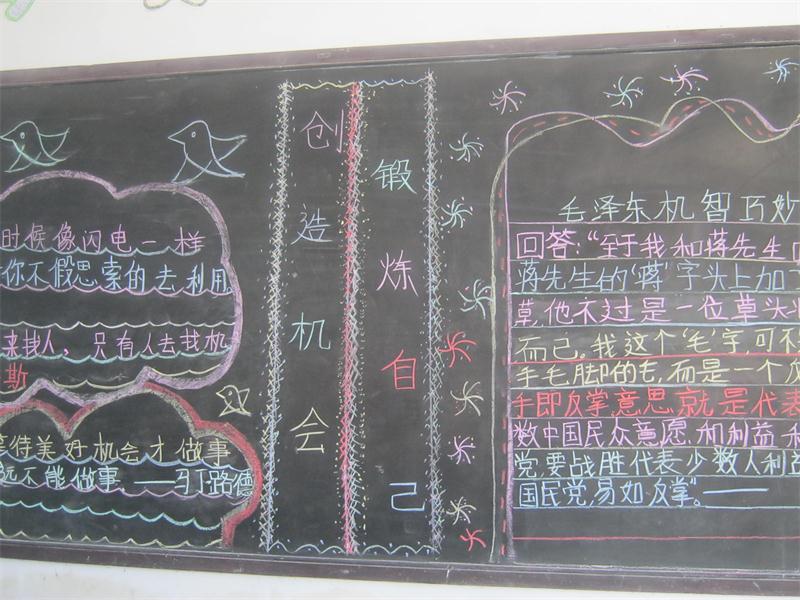 时候像闪电一样
你不假思索的去利用
来找人，只有人去找机
斯
等待美好机会才做事
远不能做事。——马丁路德
创造机会
锻炼自己
毛泽东机智巧妙
回答：“至于我和蒋先生
蒋先生的‘蒋’字头上加了
草，他不过是一位草头
而己。我这个‘毛’字，可不
手毛脚的毛，而是一个反
手即反掌，意思就是代表
数中国民众意愿和利益
党要战胜代表少数人利益
国民党，易如反掌”。——